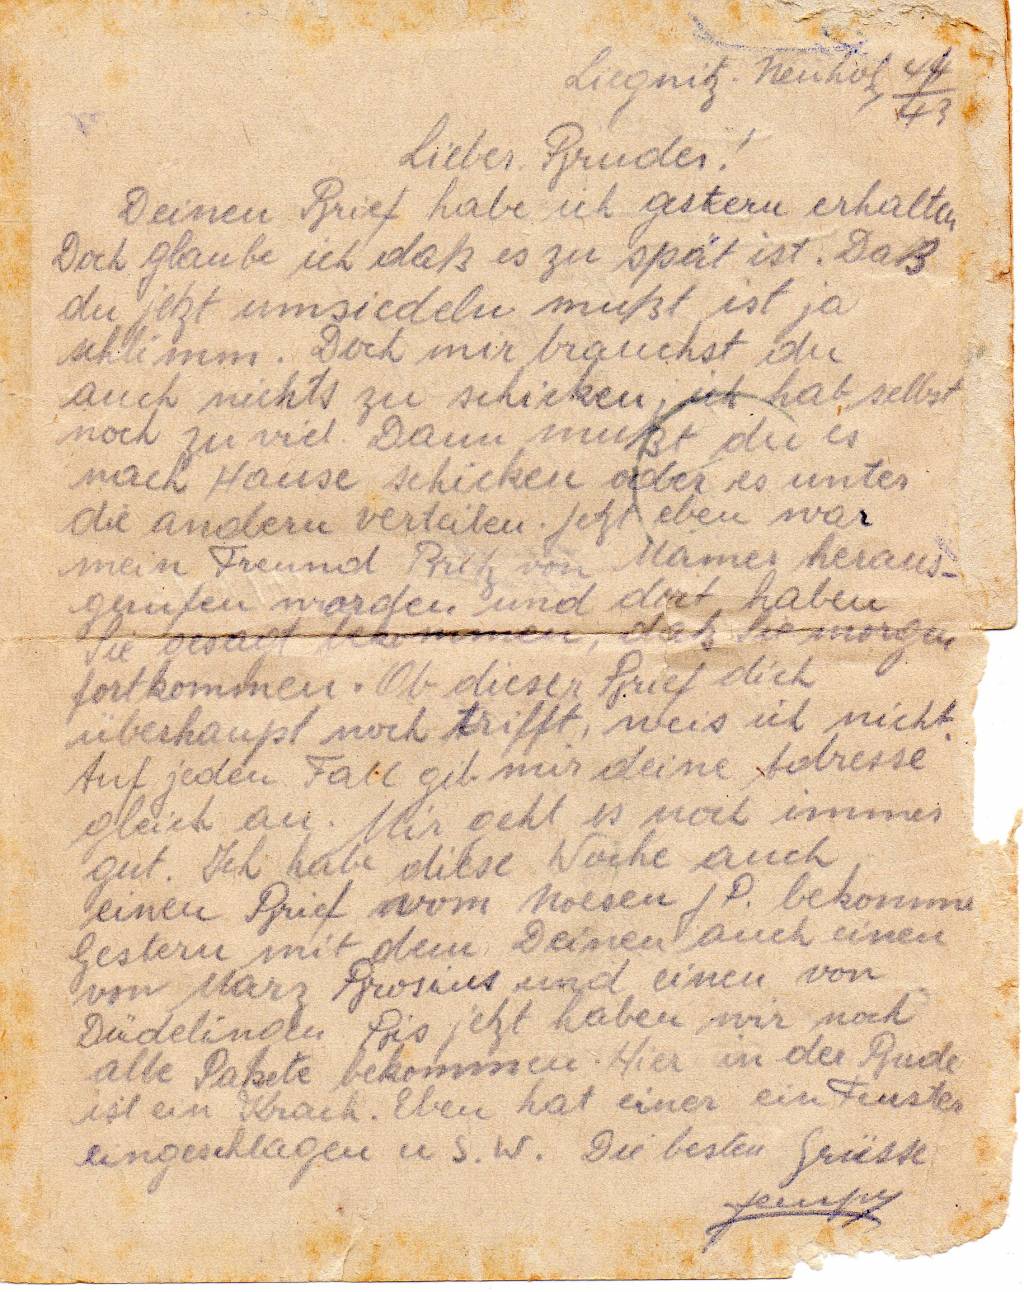 Liegnitz. Neuhof, 4/4 43
Lieber Bruder!
Deinen Brief habe ich gestern erhalten
Doch glaube ich daß es zu spät ist. Daß
du jetzt umsiedeln mußt ist ja
schlimm. Doch mir brauchst du
auch nichts zu schicken, ich hab selbst
noch zu viel. Dann mußt du es
nach Hause schicken oder es unter
die andern verteilen. Jetzt eben war
mein Freund von heraus-
gerufen worden und dort haben
Sie gesagt bekommen, daß Sie morgen
fortkommen. Ob dieser Brief dich
überhaupt noch trifft, weis ich nicht.
Auf jeden Fall gib mir deine Adresse
gleich an. Mir geht es noch immer
gut. Ich habe diese Woche auch
einen Brief vom Noesen J P. bekomme
Gestern mit dem Deinen auch einen
von Marz Brosius und einen von
Düdelingen Bis jetzt haben wir noch
alle Pakete bekommen. Hier in der Bude
ist ein Krach. Eben hat einer ein Fenster
eingeschlagen u S. W. Die besten Grüsse
Jempy